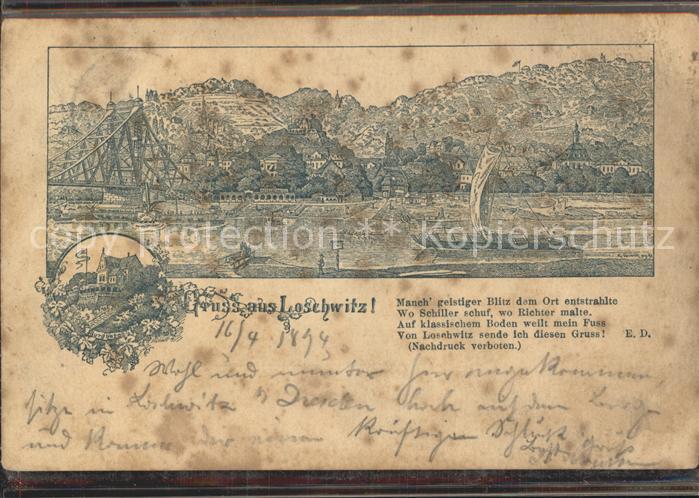 copy protection ** Kopierschutz
Gruss aus Loschwitz!
Manch' geistiger Blitz dem Ort entstrahlte
Wo Schiller schuf, wo Richter malte.
Auf klassischem Boden weilt mein Fuss
Von Loschwitz sende ich diesen Gruss! E. D.
(Nachdruck verboten.)
16/4 1894
Wohl und munter hier angekommen,
sitze in Loschwitz b/ Dresden hoch auf dem Berge
und komme einen kräftigen Schluck